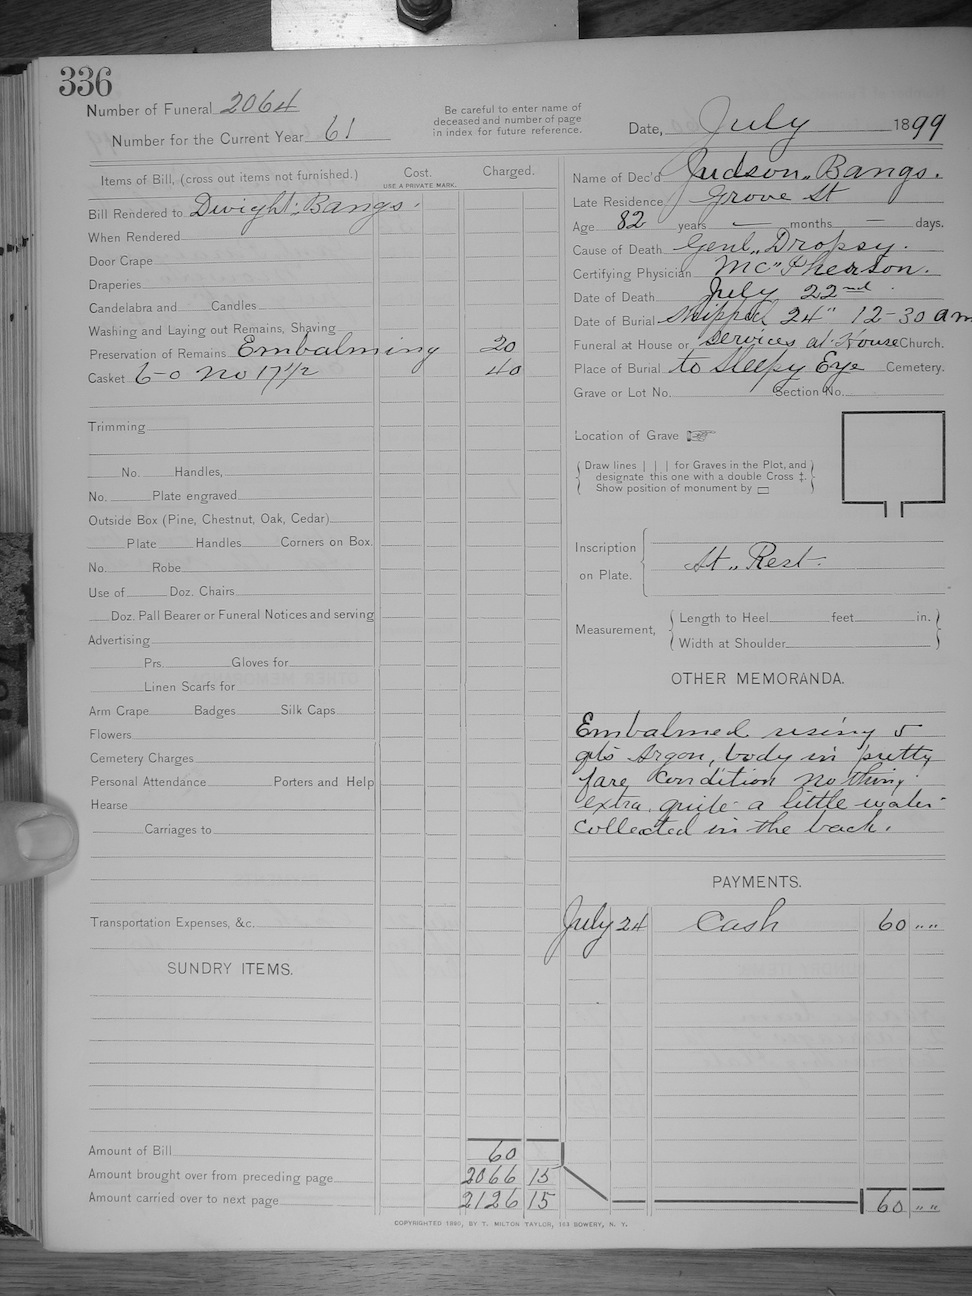 336
Number of Funeral 2064
Number for the Current Year 61
Be careful to enter name of
deceased and number of page
in index for future reference.
Date, July 1899
Items of Bill, (cross out items not furnished.) Cost. Charged.
USE A PRIVATE MARK.
Bill Rendered to Dwight Bangs.
When Rendered
Door Crape
Draperies
Candelabra and Candles
Washing and Laying out Remains, Shaving
Preservation of Remains Embalming 20
Casket 6-0 No 17 1/2 40
Trimming
No. Handles,
No. Plate engraved
Outside Box (Pine, Chestnut, Oak, Cedar)
Plate Handles Corners on Box.
No. Robe
Use of Doz. Chairs
Doz. Pall Bearer or Funeral Notices and serving
Advertising
Prs. Gloves for
Linen Scarfs for
Arm Crape Badges Silk Caps
Flowers
Cemetery Charges
Personal Attendance Porters and Help
Hearse
Carriages to
Transportation Expenses, &c.
SUNDRY ITEMS.
Amount of Bill 60
Amount brought over from preceding page 2066 15
Amount carried over to next page 2126 15
Name of Dec'd Judson Bangs.
Late Residence Grove St
Age 82 years — months — days.
Cause of Death Genl. Dropsy.
Certifying Physician McPherson.
Date of Death July 22nd.
Date of Burial Shipped 24" 12-30 am
Funeral at House or services at House Church.
Place of Burial to Sleepy Eye Cemetery.
Grave or Lot No. Section No.
Location of Grave
Draw lines | | | for Graves in the Plot, and
designate this one with a double Cross ‡.
Show position of monument by ▭
Inscription
on Plate.
At Rest.
Measurement,
Length to Heel feet in.
Width at Shoulder
OTHER MEMORANDA.
Embalmed using 5
qts Argon, body in pretty
fare condition nothing
extra. quite a little water
collected in the back.
PAYMENTS.
July 24 Cash 60 „ „
60 „ „
COPYRIGHTED 1890, BY T. MILTON TAYLOR, 131 BOWERY, N. Y.